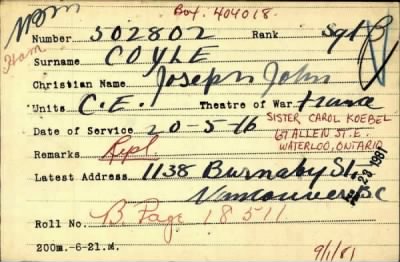 Box. 404018.
Mem
Ham
Number 502802 Rank Sgt
Surname COYLE
Christian Name Joseph John
Units C.E. Theatre of War France
SISTER CAROL KOEBEL
Date of Service 20-5-16
67 ALLEN ST. E.
WATERLOO, ONTARIO
Remarks Repl.
23 1981
Latest Address 1138 Burnaby St.
Vancouver BC
Roll No. B Page 18511
200m.-6-21.M.
9/1/81